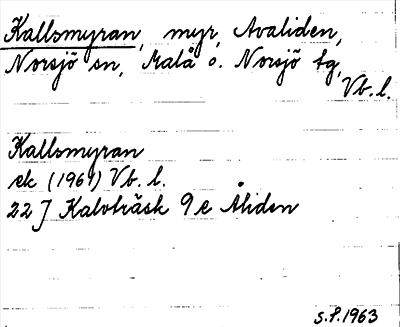 Kallsmyran, myr, Avaliden,
Norsjö sn, Malå o. Norsjö tg,
Vb. l.
Kallsmyran
ek (1961) Vb. l.
22 J Kalvträsk 9 e Åliden
S.P. 1963